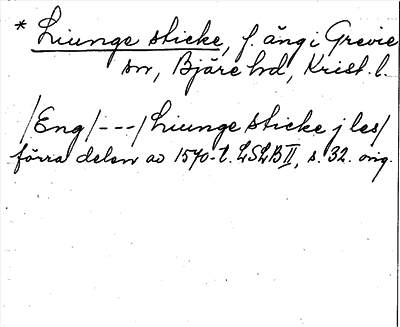 * Liunge sticke, f. äng i Grevie
sn, Bjäre hd, Krist. l.
/Eng/---/Liunge sticke j les/
förra delen av 1570-t. LSLB II, s. 32. orig.